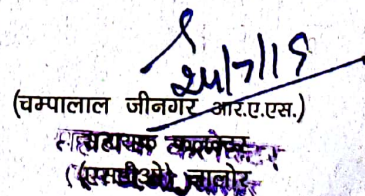 24/7/19
(चम्पालाल जीनगर आर.ए.एस.)
सहायक कलेक्टर
(एसडीओ) जालोर